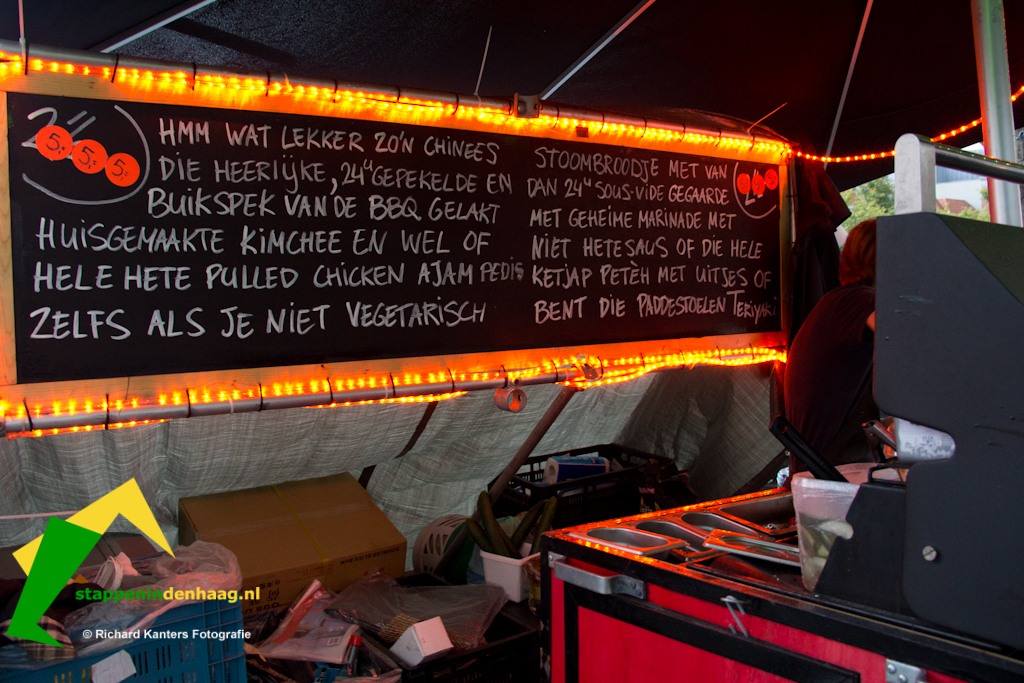 HMM WAT LEKKER ZO'N CHINEES
DIE HEERLIJKE, 24U GEPEKELDE EN
BUIKSPEK VAN DE BBQ GELAKT
HUISGEMAAKTE KIMCHEE EN WEL OF
HELE HETE PULLED CHICKEN AJAM PEDIS
ZELFS ALS JE NIET VEGETARISCH
5,- 5,- 5,-
STOOMBROODJE MET VAN
DAN 24U SOUS-VIDE GEGAARDE
MET GEHEIME MARINADE MET
NIET HETE SAUS OF DIE HELE
KETJAP PETÈH MET UITJES OF
BENT DIE PADDESTOELEN TERIYAKI
stappenindenhaag.nl
© Richard Kanters Fotografie